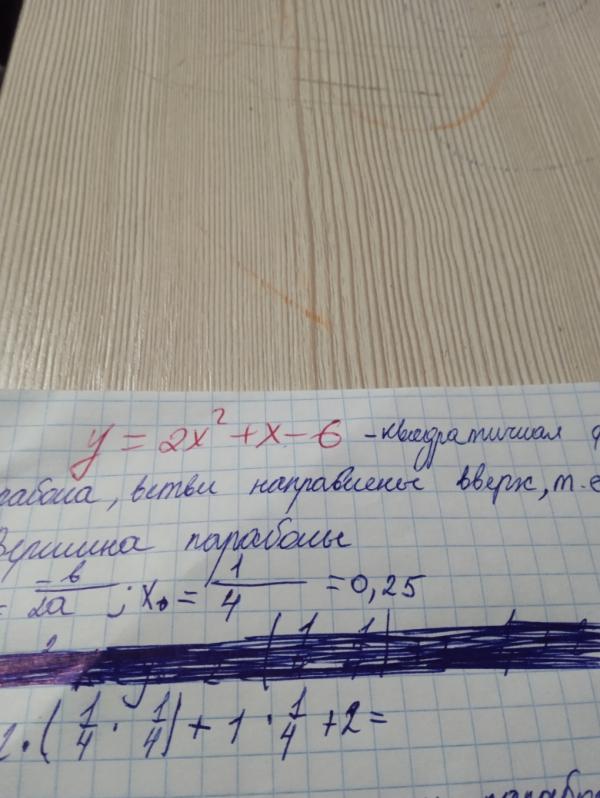 y = 2x² + x - 6 - квадратичная ф
рабола, ветви направлены вверх, т.е
Вершина параболы
= -в/2a ; x₀ = 1/4 = 0,25
2·(1/4 · 1/4) + 1 · 1/4 + 2 =
парабо